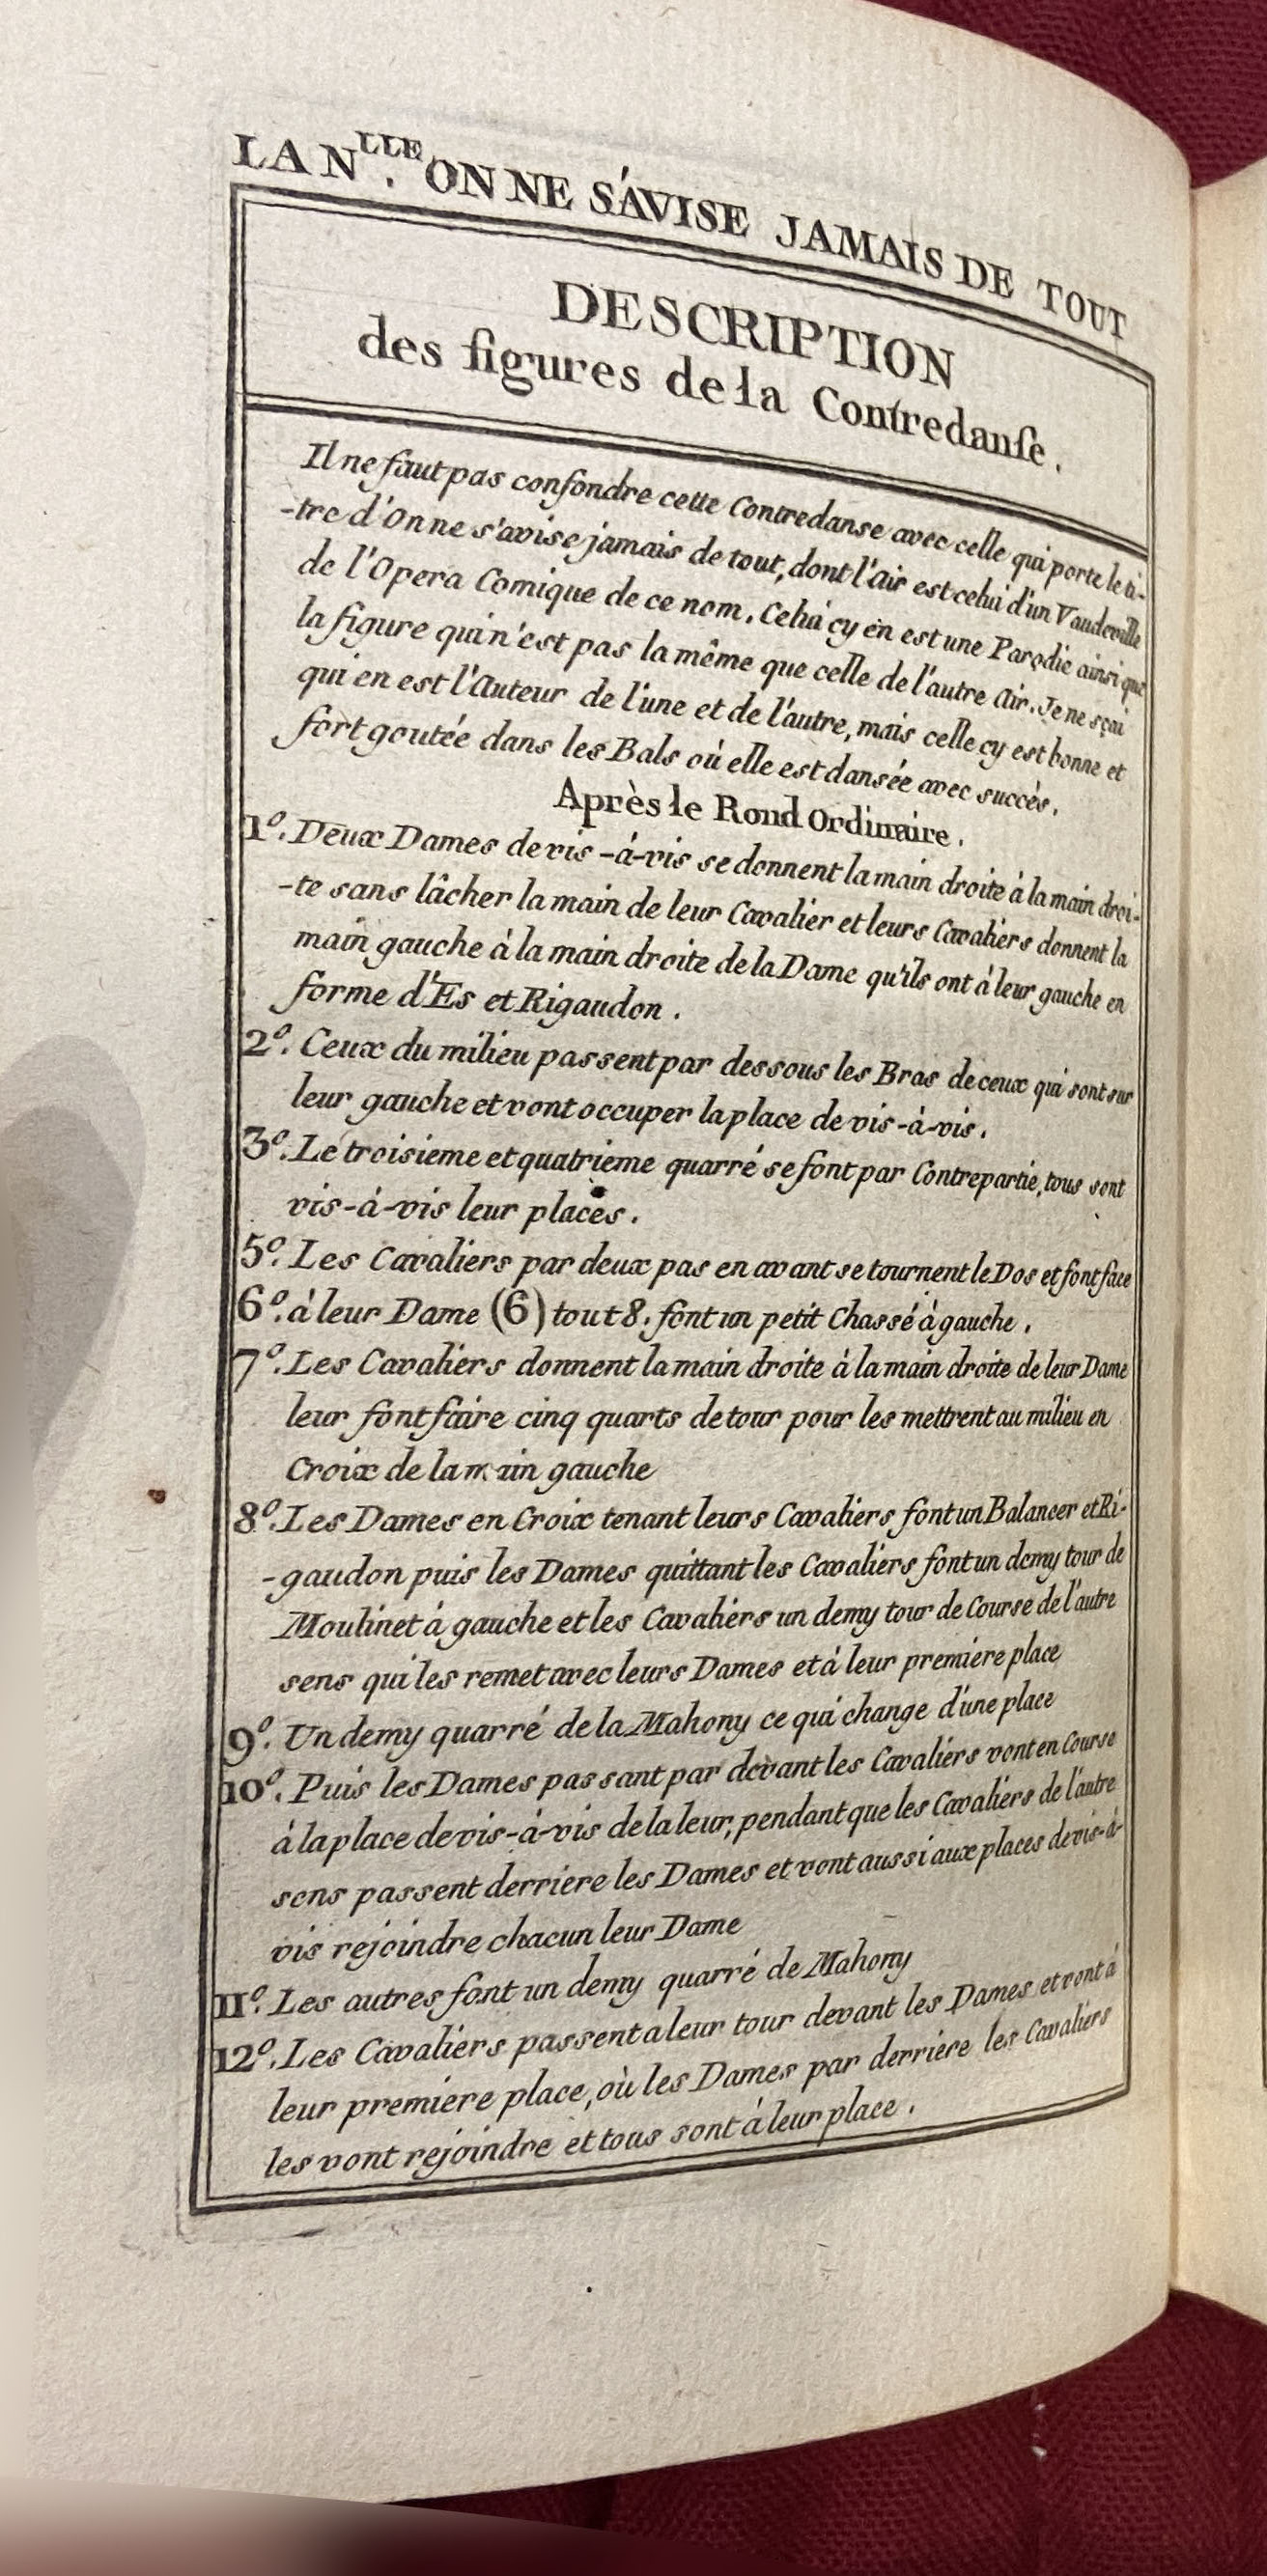 LA N.LLE ON NE S'AVISE JAMAIS DE TOUT
DESCRIPTION
des figures de la Contredanſe.
Il ne faut pas confondre cette Contredanse avec celle qui porte le ti-
-tre d'On ne s'avise jamais de tout, dont l'air est celui d'un Vaudeville
de l'Opera Comique de ce nom. Celui cy en est une Parodie ainsi que
la figure qui n'est pas la même que celle de l'autre air. Je ne sçai
qui en est l'Auteur de l'une et de l'autre, mais celle cy est bonne et
fort goutée dans les Bals où elle est dansée avec succès.
Après le Rond Ordinaire.
1º. Deux Dames de vis-à-vis se donnent la main droite à la main droi-
-te sans lâcher la main de leur Cavalier et leurs Cavaliers donnent la
main gauche à la main droite de la Dame qu'ils ont à leur gauche en
forme d'Es et Rigaudon.
2º. Ceux du milieu passent par dessous les Bras de ceux qui sont sur
leur gauche et vont occuper la place de vis-à-vis.
3º. Le troisieme et quatrieme quarré se font par Contrepartie, tous sont
vis-à-vis leur places.
5º. Les Cavaliers par deux pas en avant se tournent le Dos et font face
6º. à leur Dame (6) tout 8. font un petit Chassé à gauche.
7º. Les Cavaliers donnent la main droite à la main droite de leur Dame
leur font faire cinq quarts de tour pour les mettrent au milieu en
Croix de la main gauche
8º. Les Dames en Croix tenant leurs Cavaliers font un Balancer et Ri-
-gaudon puis les Dames quittant les Cavaliers font un demy tour de
Moulinet à gauche et les Cavaliers un demy tour de Course de l'autre
sens qui les remet avec leurs Dames et à leur premiere place
9º. Un demy quarré de la Mahony ce qui change d'une place
10º. Puis les Dames passant par devant les Cavaliers vont en Course
à la place de vis-à-vis de la leur, pendant que les Cavaliers de l'autre
sens passent derriere les Dames et vont aussi aux places de vis-à-
vis rejoindre chacun leur Dame
11º. Les autres font un demy quarré de Mahony
12º. Les Cavaliers passent a leur tour devant les Dames et vont à
leur premiere place, où les Dames par derriere les Cavaliers
les vont rejoindre et tous sont à leur place.